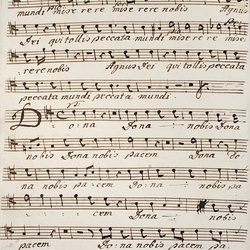 mundi mise rere mise rere nobis Agnus
Dei qui tollis peccata mundi mise re re mise
rere nobis Agnus Dei qui tollis peccata
peccata mundi peccata mundi.
Do:na Dona nobis Dona
nobis Dona nobis pacem Dona do
na nobis nobis pa:cem Do:na nobis pa
cem Dona nobis
pacem Do:na nobis pacem